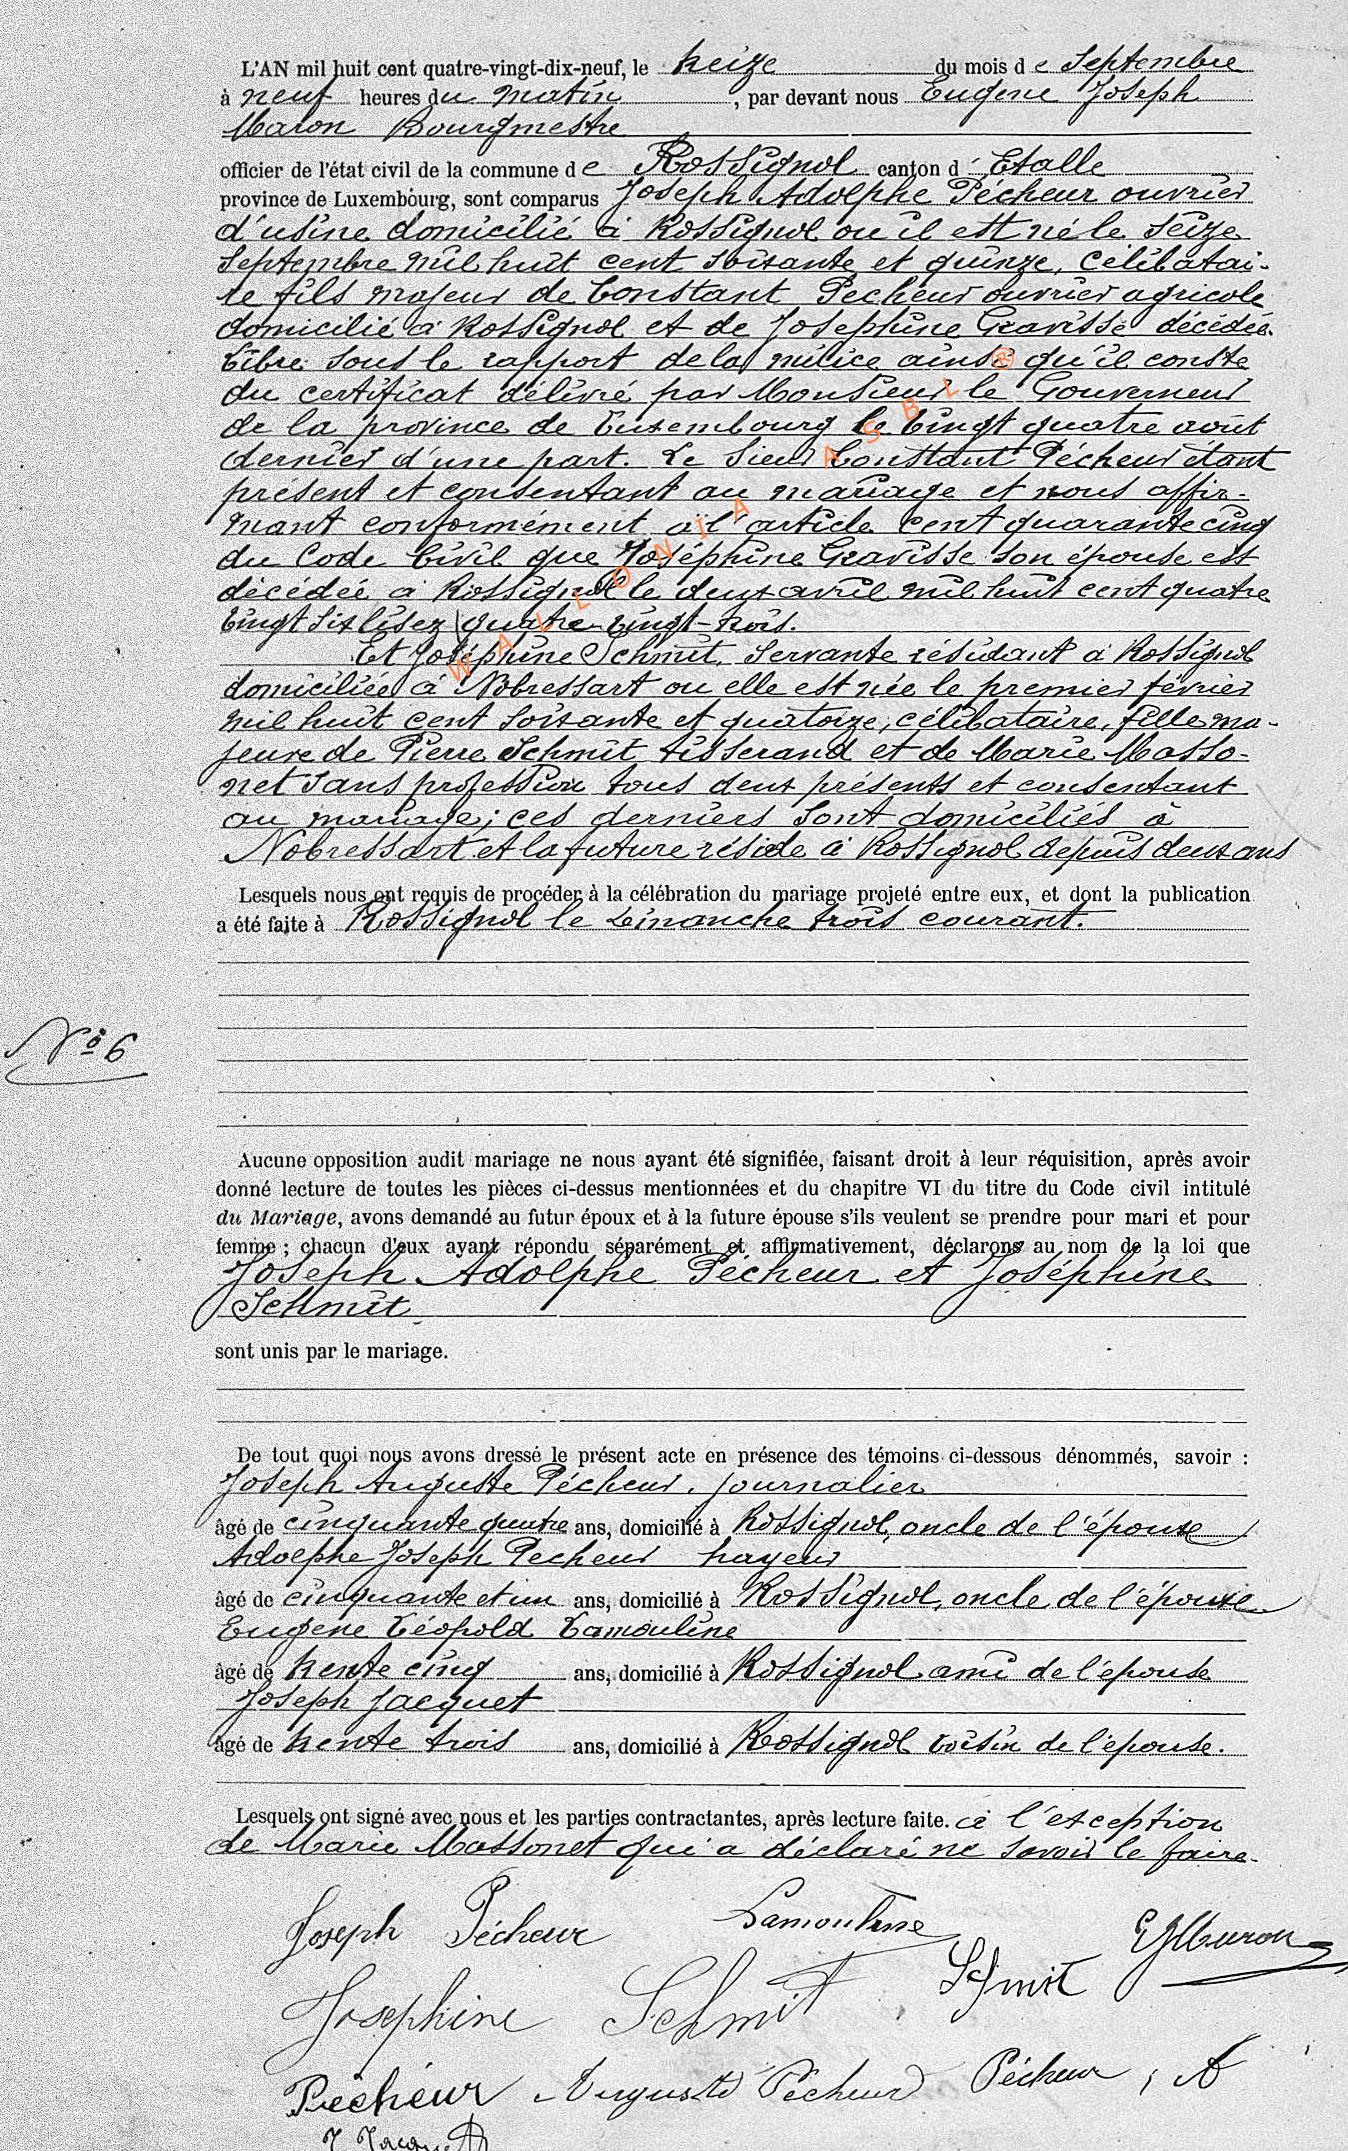 L'AN mil huit cent quatre-vingt-dix-neuf, le treize du mois de Septembre
à neuf heures du matin, par devant nous Eugène Joseph
Maron Bourgmestre
officier de l'état civil de la commune de Rossignol canton d'Etalle
province de Luxembourg, sont comparus Joseph Adolphe Pécheur ouvrier
d'usine domicilié à Rossignol où il est né le seize
Septembre mil huit cent soixante et quinze, célibatai-
re fils majeur de Constant Pecheur ouvrier agricole
domicilié à Rossignol et de Josephine Gravisse décédée.
Libre sous le rapport de la milice ainsi qu'il conste
du certificat délivré par Monsieur le Gouverneur
de la province de Luxembourg le vingt quatre août
dernier d'une part. Le Sieur Constant Pécheur étant
présent et consentant au mariage et nous affir-
mant conformément à l'article cent quarante cinq
du Code Civil que Joséphine Gravisse son épouse est
décédée à Rossignol le deux avril mil huit cent quatre
vingt six lisez quatre-vingt-trois.
Et Joséphine Schmit, servante résidant à Rossignol
domiciliée à Nobressart où elle est née le premier février
mil huit cent soixante et quatorze, célibataire, fille ma-
jeure de Pierre Schmit tisserand et de Marie Masso-
net sans profession tous deux présents et consentant
au mariage; ces derniers sont domiciliés à
Nobressart et la future réside à Rossignol depuis deux ans
Lesquels nous ont requis de procéder à la célébration du mariage projeté entre eux, et dont la publication
a été faite à Rossignol le Dimanche trois courant.
N° 6
Aucune opposition audit mariage ne nous ayant été signifiée, faisant droit à leur réquisition, après avoir
donné lecture de toutes les pièces ci-dessus mentionnées et du chapitre VI du titre du Code civil intitulé
du Mariage, avons demandé au futur époux et à la future épouse s'ils veulent se prendre pour mari et pour
femme ; chacun d'eux ayant répondu séparément et affirmativement, déclarons au nom de la loi que
Joseph Adolphe Pécheur et Joséphine
Schmit
sont unis par le mariage.
De tout quoi nous avons dressé le présent acte en présence des témoins ci-dessous dénommés, savoir :
Joseph Auguste Pécheur, journalier
âgé de cinquante quatre ans, domicilié à Rossignol, oncle de l'époux
Adolphe Joseph Pecheur
âgé de cinquante et un ans, domicilié à Rossignol, oncle de l'époux
Eugène Léopold Lamouline
âgé de trente cinq ans, domicilié à Rossignol ami de l'épouse
Joseph Jacquet
âgé de trente trois ans, domicilié à Rossignol voisin de l'épouse.
Lesquels ont signé avec nous et les parties contractantes, après lecture faite. à l'exception
de Marie Massonet qui a déclaré ne savoir le faire.
Joseph Pécheur Lamouline EJMaron
Josephine Schmit Schmit
Pécheur Auguste Pécheur Pécheur, A
J Jacquet
WALLONIA ASBL ®